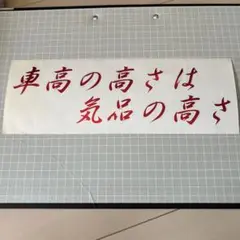 車高の高さは
気品の高さ